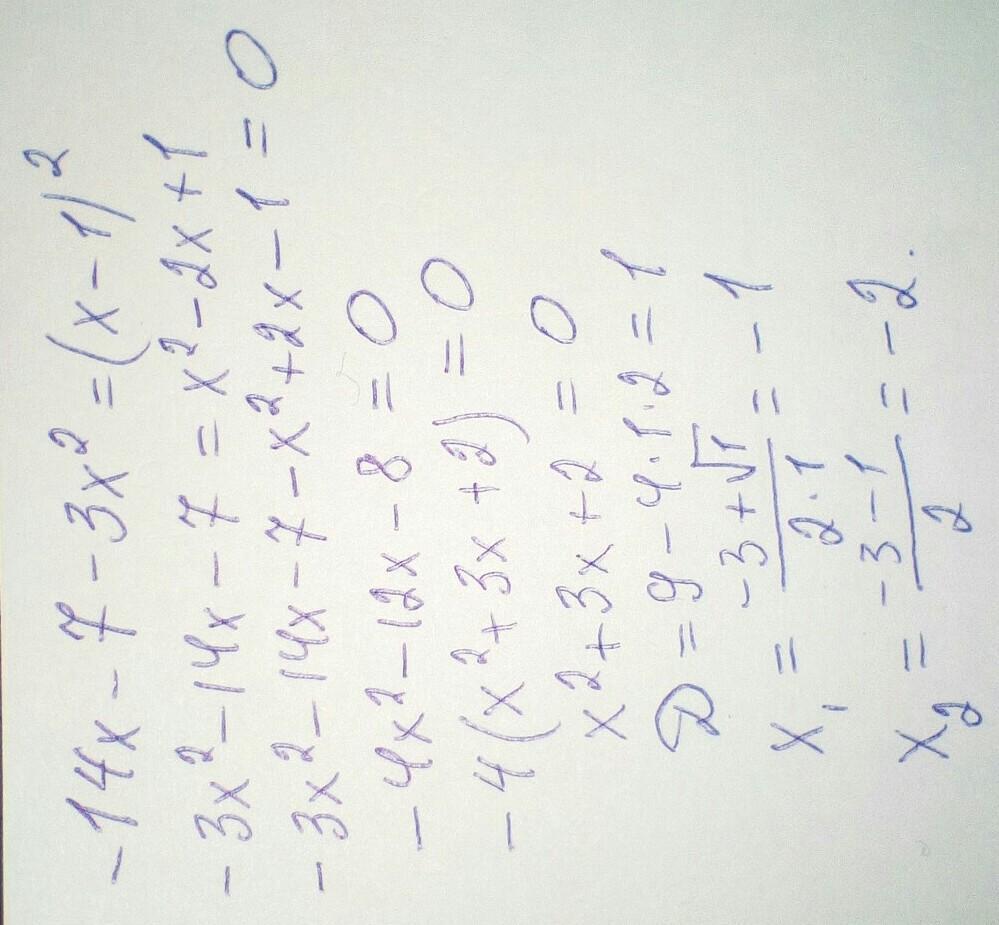 -14x - 7 - 3x² = (x - 1)²
-3x² - 14x - 7 = x² - 2x + 1
-3x² - 14x - 7 - x² + 2x - 1 = 0
-4x² - 12x - 8 = 0
-4(x² + 3x + 2) = 0
x² + 3x + 2 = 0
D = 9 - 4·1·2 = 1
x₁ = (-3 + √1)/(2·1) = -1
x₂ = (-3 - 1)/2 = -2.